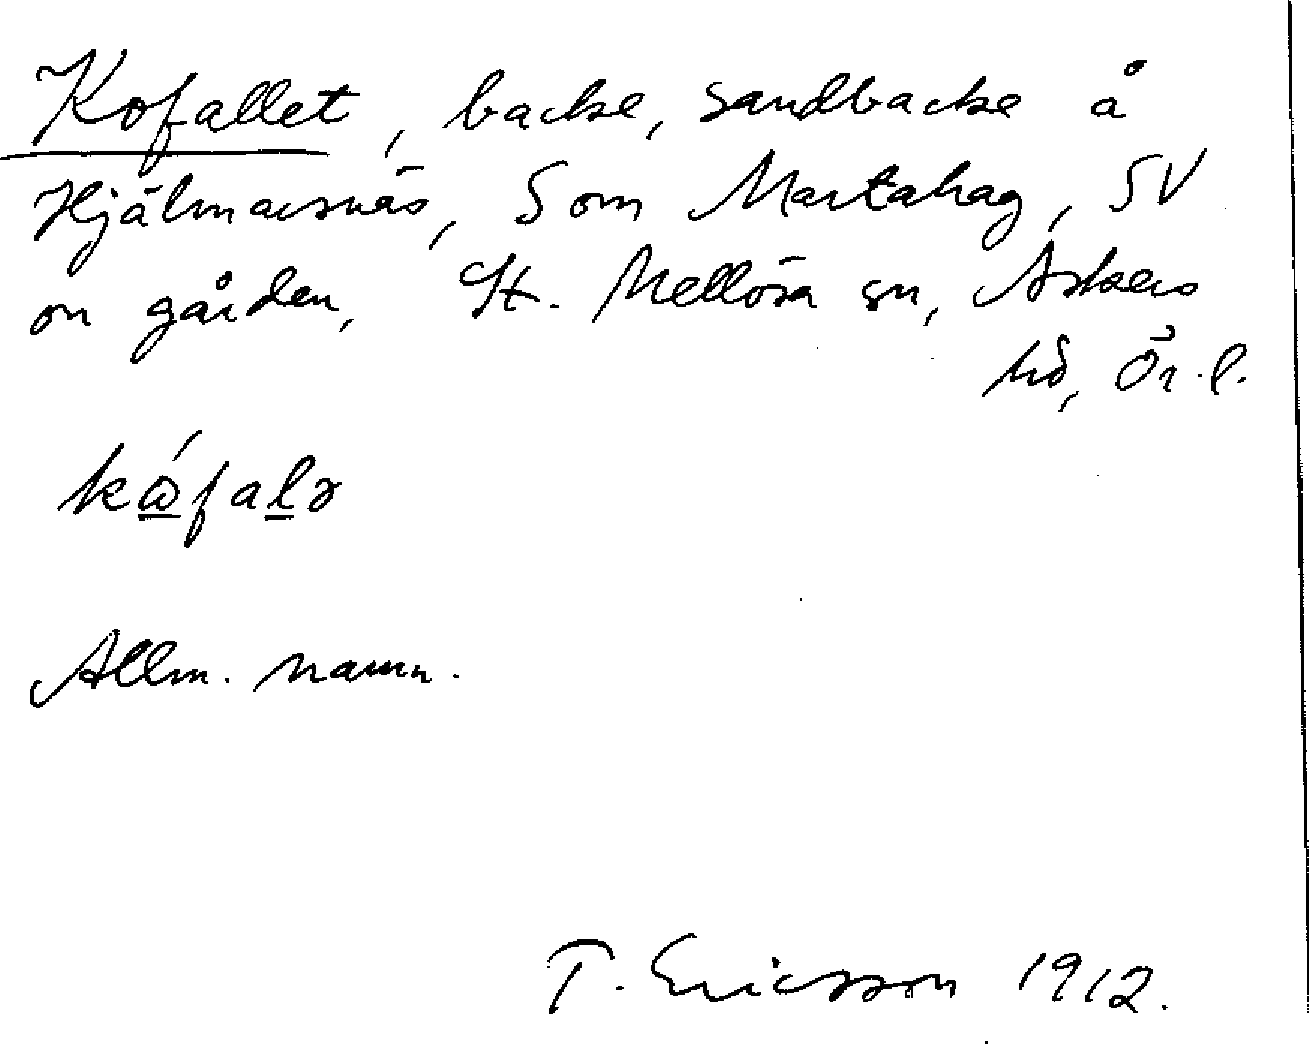 Kofallet, backe, sandbacke å
Hjälmarsnäs, S om Martahag, SV
om gården, St. Mellösa sn, Askers
hd, Ör. l.
Allm. namn.
T. Ericsson 1912.